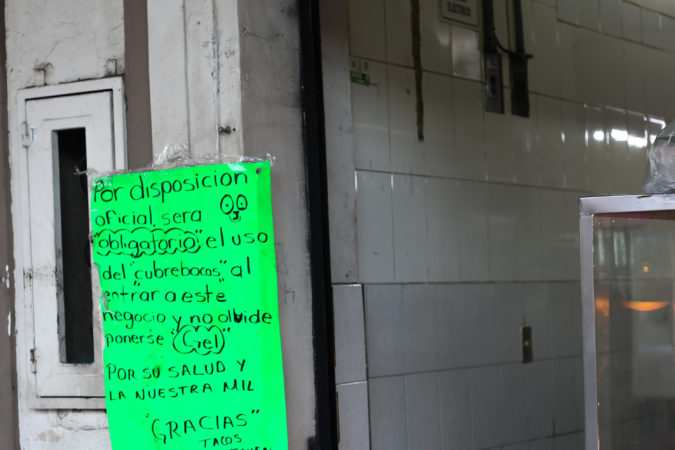 Por disposicion
oficial, sera
"obligatorio", el uso
del "cubrebocas" al
entrar a este
negocio y no olvide
ponerse "Gel"
POR SU SALUD Y
LA NUESTRA MIL
"GRACIAS"
TACOS
ELECTRICO